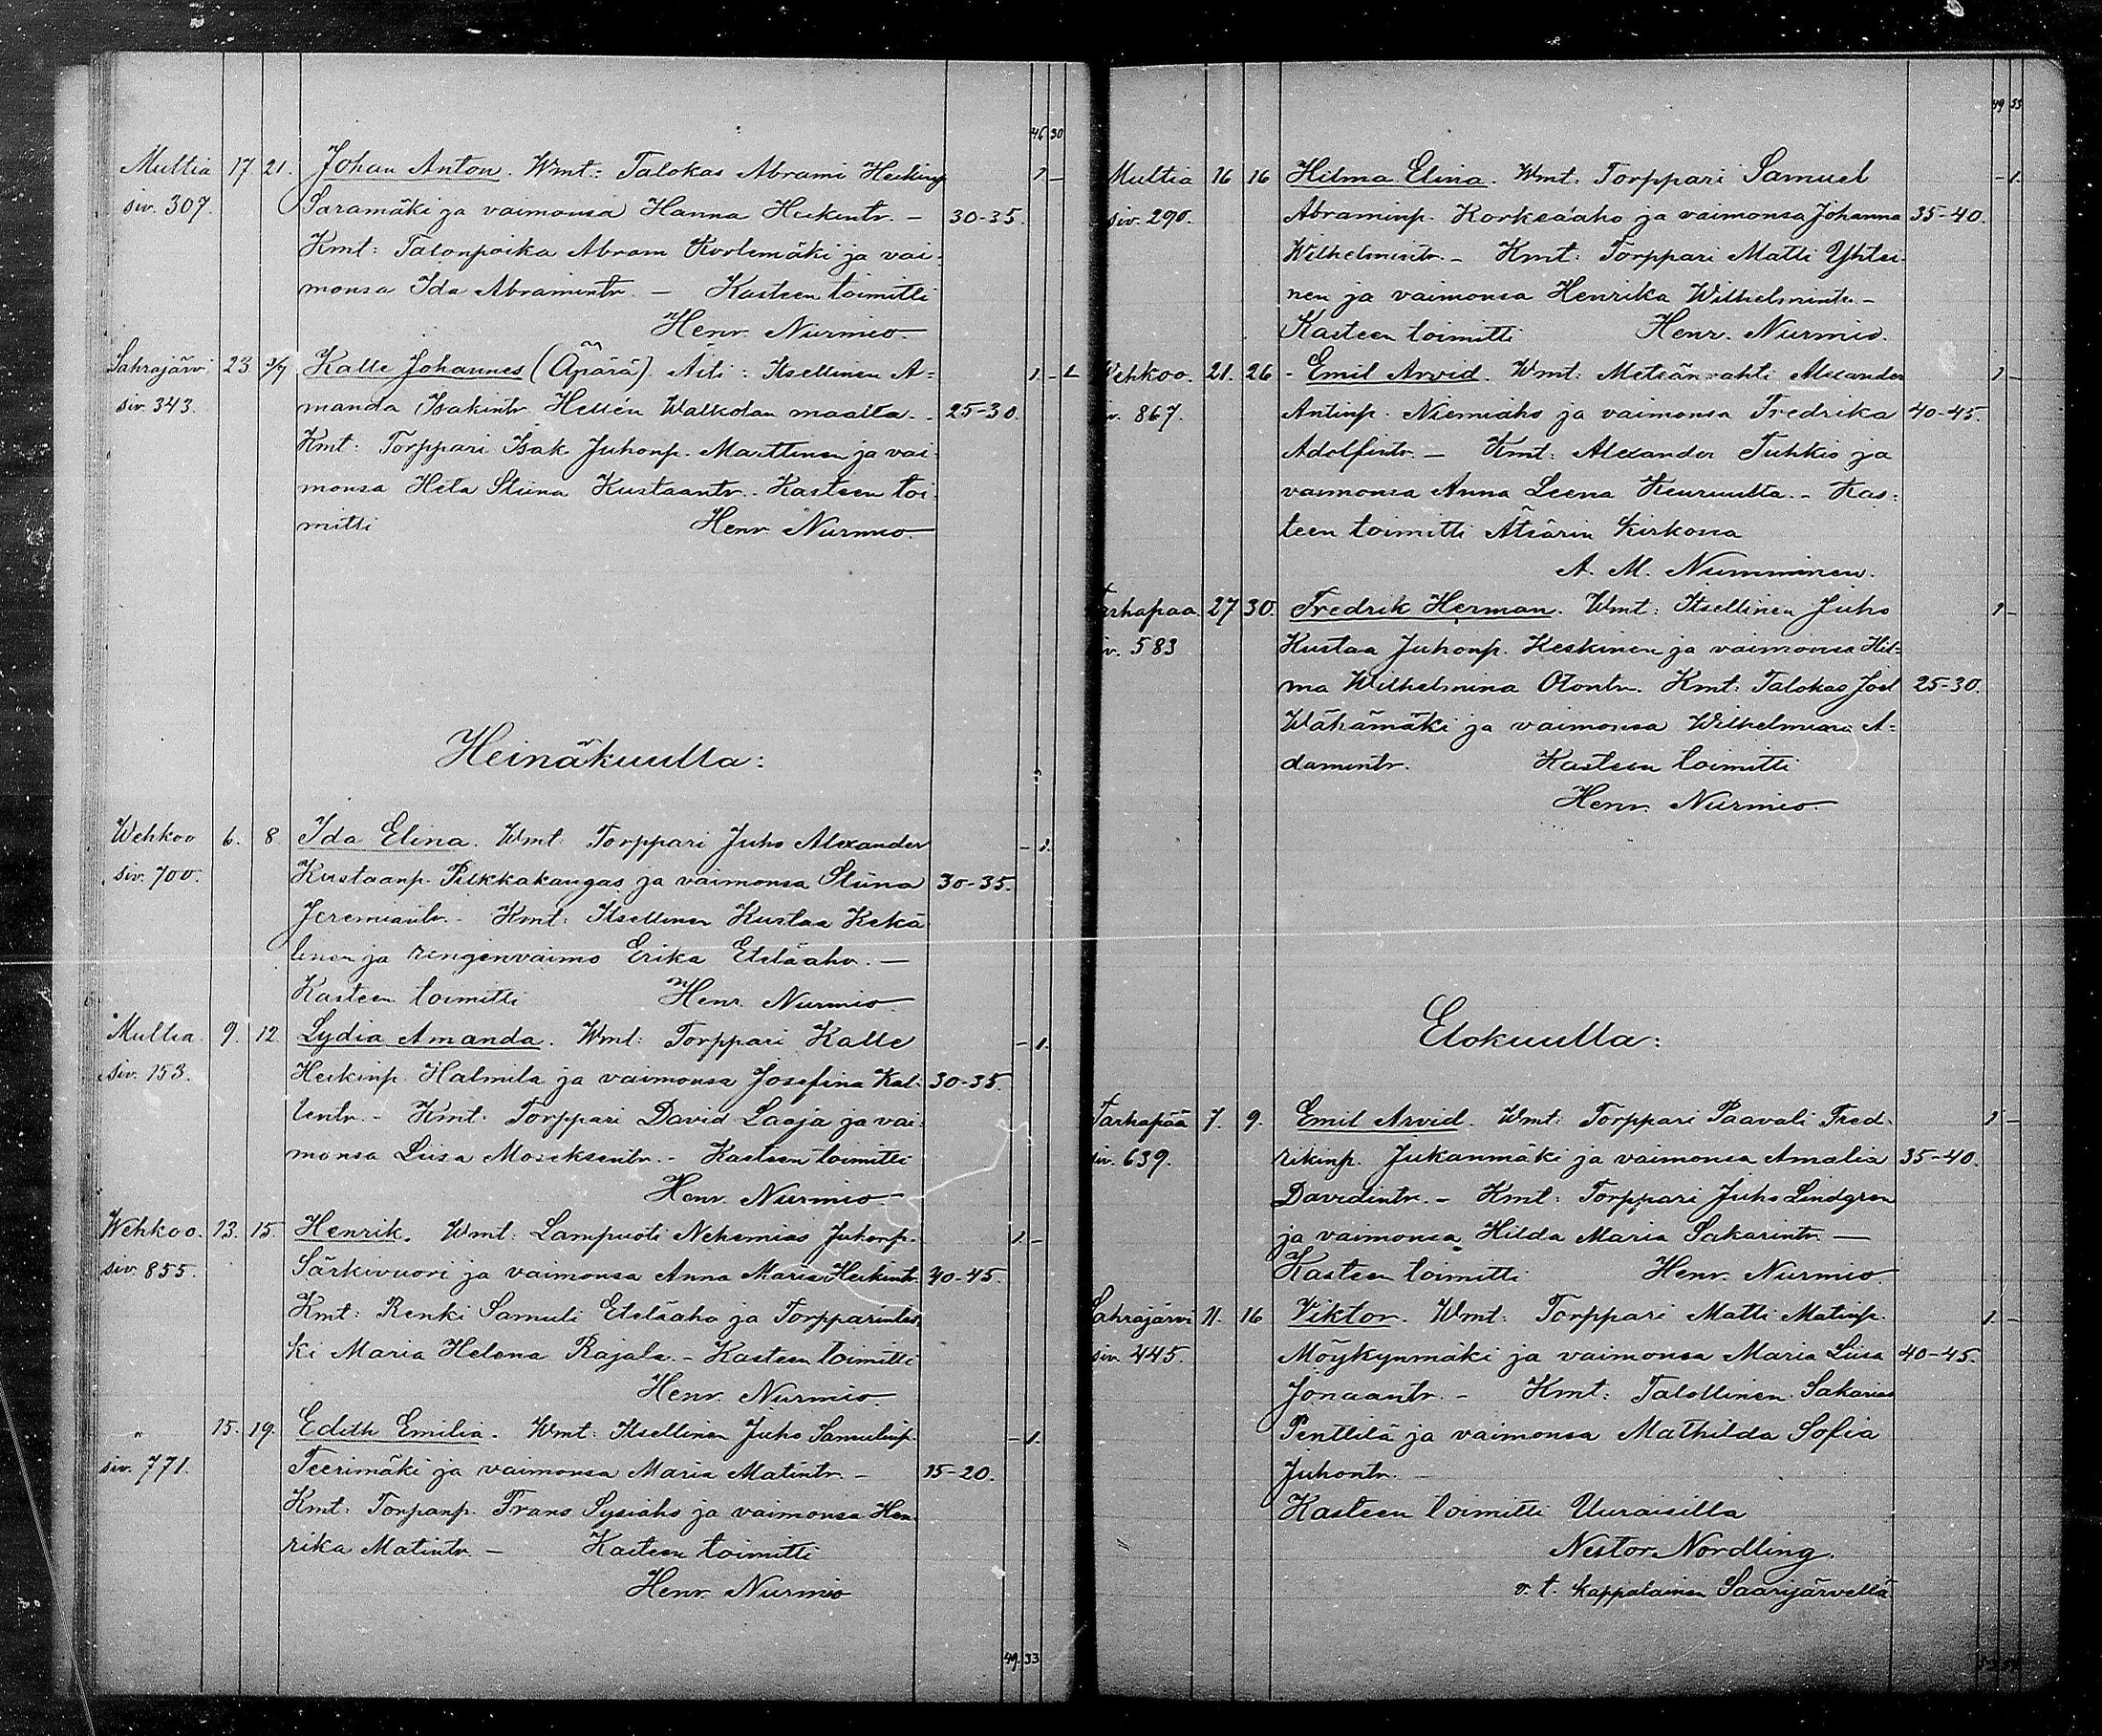 46 30
Multia 17 21. Johan Anton. Wmt: Talokas Abrami Heikinp. 1 –
siv. 307. Saramäki ja vaimonsa Hanna Heikintr. – 30-35.
Kmt: Talonpoika Abram ja vai-
monsa Ida Abramintr. – Kasteen toimitti
Henr. Nurmio.
Sahrajärvi 23 3/7 Kalle Johannes (Äpärä). Äiti: Itsellinen A= 1. – 1
siv. 343. manda Isakintr. Hellén Walkolan maalta. – 25-30.
Kmt: Torppari Isak Juhonp. Marttinen ja vai-
monsa Heta Stiina Kustaantr. Kasteen toi-
mitti Henr Nurmio.
Heinäkuulla:
Wehkoo 6. 8 Ida Elina. Wmt: Torppari Juho Alexander – 1.
siv. 700. Kustaanp. Pukkakangas ja vaimonsa Stiina 30-35.
Jeremiantr. – Kmt: Itsellinen Kustaa Kekä
linen ja renginvaimo Erika Eteläaho. –
Kasteen toimitti Henr. Nurmio
Multia. 9. 12. Lydia Amanda. Wmt: Torppari Kalle – 1.
siv. 153. Heikinp. Halmila ja vaimonsa Josefina Kal- 30-35.
lentr. – Kmt: Torppari David Laaja ja vai-
monsa Liisa Moseksentr. – Kasteen toimitti
Henr. Nurmio
Wehkoo. 13. 15. Henrik. Wmt: Lampuoti Nehemias Juhonp. 1. –
siv. 855. Särkivuori ja vaimonsa Anna Maria Heikintr. 40-45.
Kmt: Renki Samuli Eteläaho ja Torpparinles
ki Maria Helena Rajala. – Kasteen toimitti
Henr. Nurmio.
" 15. 19. Edith Emilia. Wmt: Itsellinen Juho Samulinp. – 1.
siv. 771. Teerimäki ja vaimonsa Maria Matintr. – 15-20.
Kmt: Torpanp. Frans Sysiaho ja vaimonsa Hen
rika Matintr. – Kasteen toimitti
Henr. Nurmio
49. 33
49 33
Multia 16 16 Hilma Elina. Wmt. Torppari Samuel – 1.
siv. 290. Abraminp. Korkeaaho ja vaimonsa Johanna 35-40.
Wilhelmintr. – Kmt: Torppari Matti Yhtei-
nen ja vaimonsa Henrika Wilhelmintr. –
Kasteen toimitti Henr. Nurmio.
Wehkoo. 21. 26 - Emil Arvid. Wmt: Metsänvahti Alexander 1 –
iv. 867. Antinp. Niemiaho ja vaimonsa Fredrika 40-45.
Adolfintr. – Kmt: Alexander Tuhkio ja
vaimonsa Anna Leena Keuruulta. – Kas-
teen toimitti Ätsärin kirkossa
A. M. Numminen.
Tarhapää. 27 30. Fredrik Herman. Wmt: Itsellinen Juho 1 –
iv. 583 Kustaa Juhonp. Keskinen ja vaimonsa Hil=
ma Wilhelmina Otontr. Kmt: Talokas Joel 25-30.
Wähämäki ja vaimonsa Wilhelmiina A-
damintr. Kasteen toimitti
Henr. Nurmio.
Elokuulla:
Tarhapää 7. 9. Emil Arvid. Wmt: Torppari Paavali Fred- 1 –
siv. 639. rikinp. Jukanmäki ja vaimonsa Amalia 35-40.
Davidintr. – Kmt: Torppari Juho Lindgren
ja vaimonsa Hilda Maria Sakarintr. –
Kasteen toimitti Henr. Nurmio.
Sahrajärvi 11. 16 Viktor. Wmt: Torppari Matti Matinp. 1. –
siv. 445. Möykynmäki ja vaimonsa Maria Liisa 40-45.
Jonaantr. – Kmt: Talollinen Sakarias
Penttilä ja vaimonsa Mathilda Sofia
Juhontr. –
Kasteen toimitti Uuraisilla
Nestor Nordling.
v. t. kappalainen Saarijärvellä